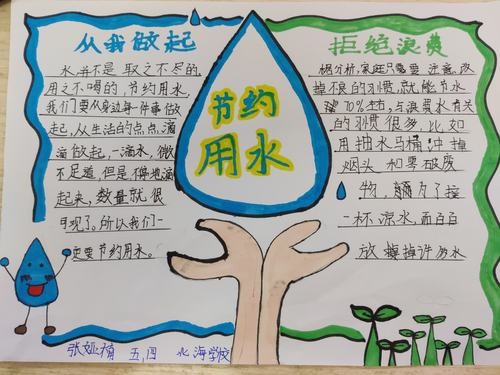 从我做起
水并不是取之不尽的,
用之不喝的,节约用水
我们要从身边每一件事做
起,从生活的点,点,滴
滴做起,一滴水,微
不足道,但是得地滴
起来,数量就很
可观了。所以我们一
定要节约用水。
节约
用水
拒绝浪费
据分析,家庭只需要注意,改
掉不良的习惯,就能节水
70%左右,与浪费水有关
的习惯很多,比如
用抽水马桶冲掉
烟头和零碎废
物,为了接
一杯凉水,而白白
放掉许多水
张 楠 五,四 水海学校